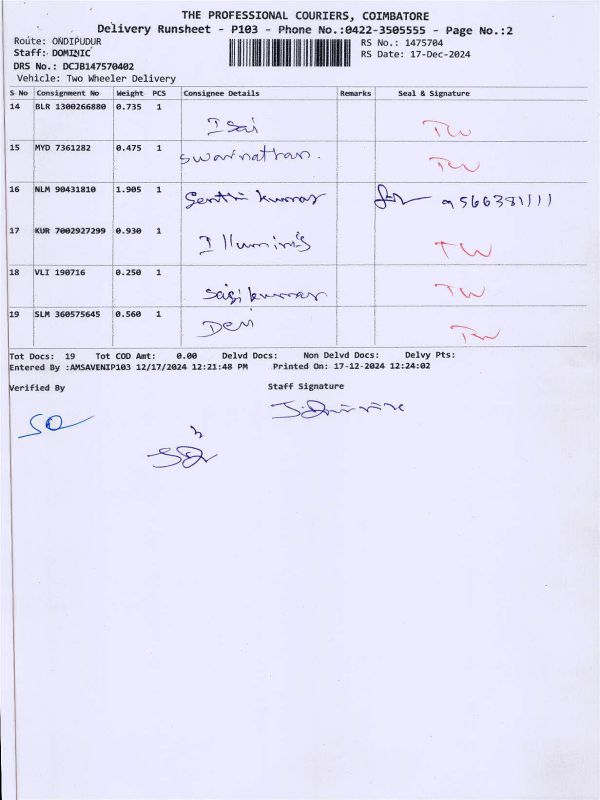 THE PROFESSIONAL COURIERS, COIMBATORE
Delivery Runsheet - P103 - Phone No.:0422-3505555 - Page No.:2
Route: ONDIPUDUR
RS No.: 1475704
Staff: DOMINIC
RS Date: 17-Dec-2024
DRS No.: DCJB147570402
Vehicle: Two Wheeler Delivery
S No Consignment No Weight PCS Consignee Details Remarks Seal & Signature
14 BLR 1300266880 0.735 1
Isai TW
15 MYD 7361282 0.475 1
TW
16 NLM 90431810 1.905 1
Senthil kumar 9566381111
17 KUR 7002927299 0.930 1
TW
18 VLI 190716 0.250 1
TW
19 SLM 360575645 0.560 1
Devi TW
Tot Docs: 19 Tot COD Amt: 0.00 Delvd Docs: Non Delvd Docs: Delvy Pts:
Entered By :AMSAVENIP103 12/17/2024 12:21:48 PM Printed On: 17-12-2024 12:24:02
Verified By Staff Signature